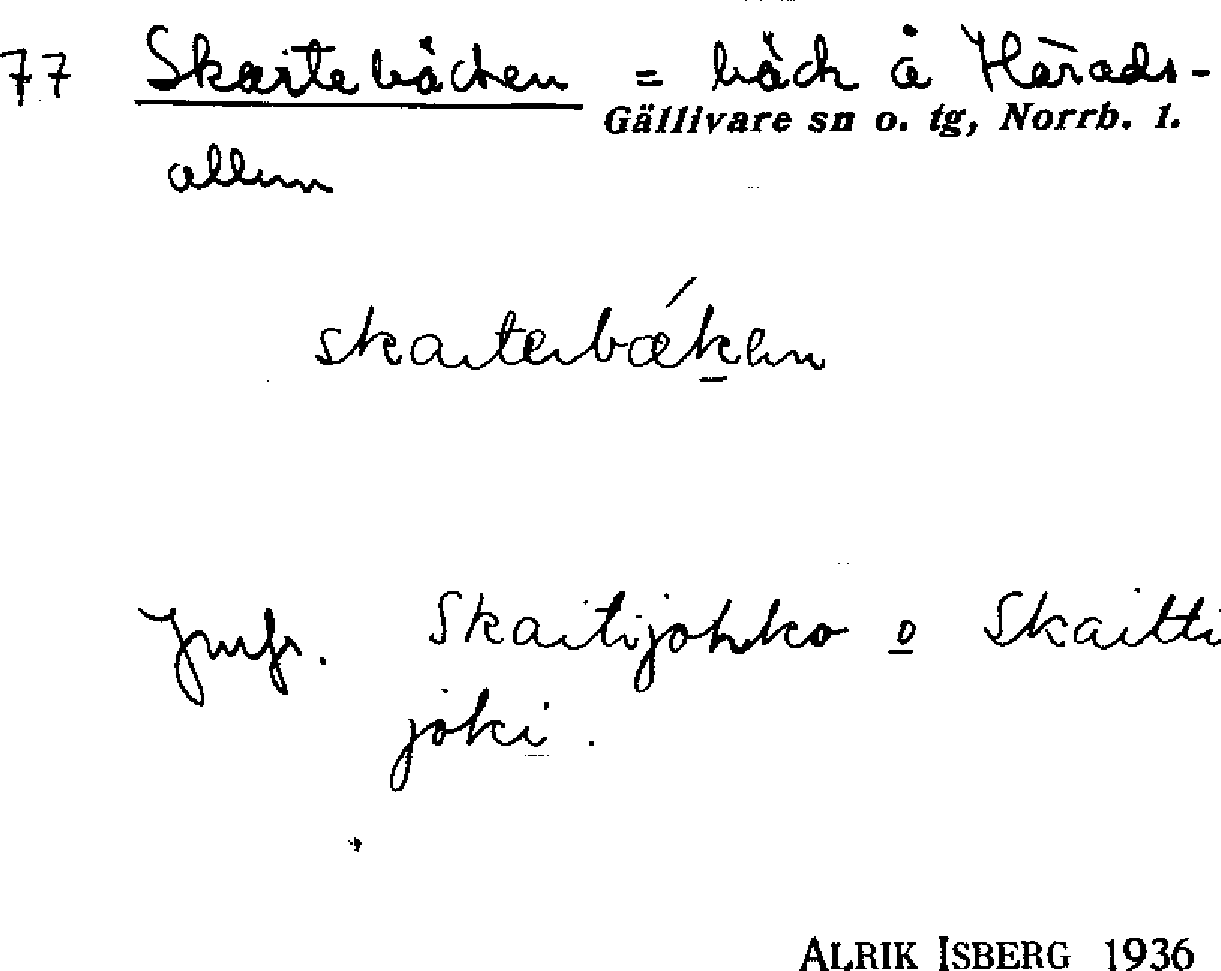 77 Skaitebäcken = bäck å Härads-
Gällivare sn o. tg, Norrb. l.
allm
skaitebæken
Jmfr. Skaitijohko o Skaitti
joki.
ALRIK ISBERG 1936